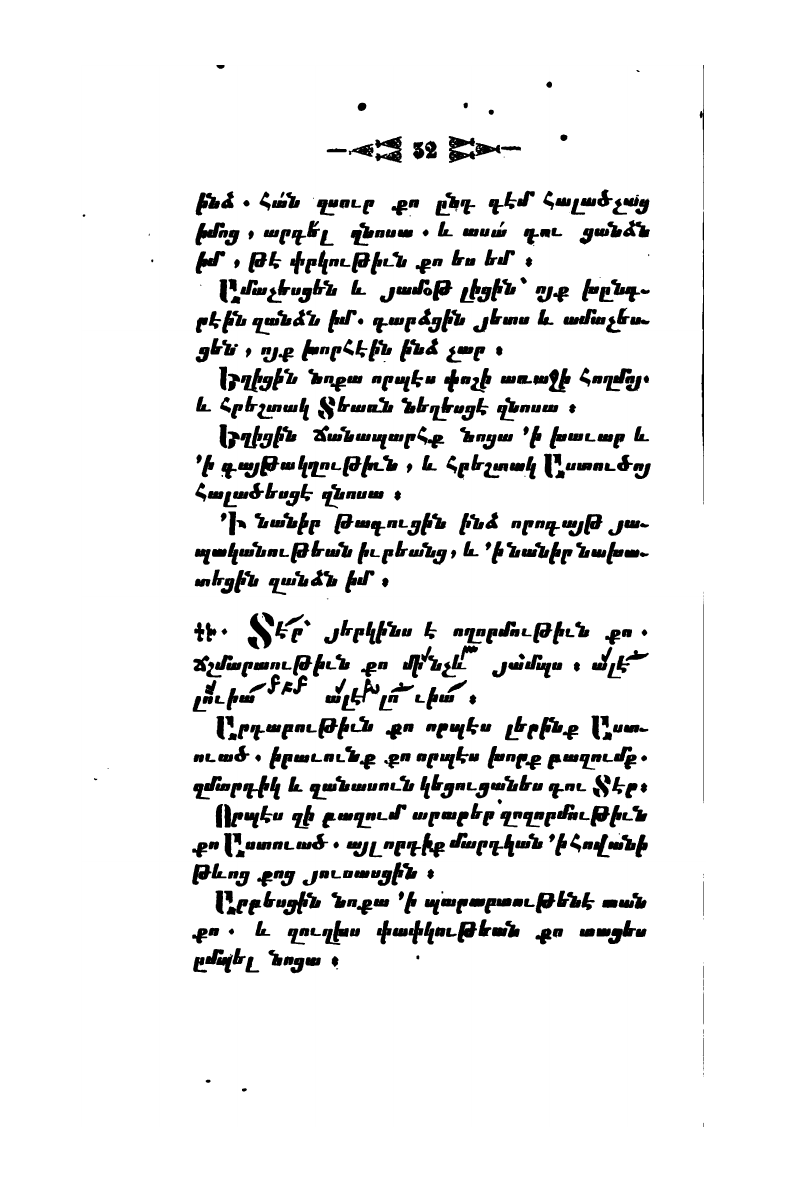 32
ինձ . Հա՛ն զսուր քո ընդ դէմ հալածչաց
իմոց , արգե՛լ զնոսա . և ասա՛ դու ցանձն
իմ , թէ փրկութիւն քո ես եմ ։
Ամաչեսցեն և յամօթ լիցին՝ ոյք խընդ֊
րէին զանձն իմ . դարձցին յետս և ամաչես֊
ցեն , ոյք խորհէին ինձ չար ։
Եղիցին նոքա որպէս փոշի առաջի հողմոյ.
և հրեշտակ Տեառն նեղեսցէ զնոսա ։
Եղիցին ճանապարհք նոցա ՚ի խաւար և
՚ի գայթակղութիւն , և հրեշտակ Աստուծոյ
հալածեսցէ զնոսա ։
՚Ի նանիր թագուցին ինձ որոգայթ յա֊
պականութեան իւրեանց , և ՚ի նանիր նախա֊
տեցին զանձն իմ ։
դկ. Տէ՛ր՝ յերկինս է ողորմութիւն քո .
ճշմարտութիւն քո մինչև յամպս ։ ալէ
լուիա ալէլուիա ։
Արդարութիւն քո որպէս լերինք Աստ֊
ուած . իրաւունք քո որպէս խորք բազումք.
զմարդիկ և զանասուն կեցուցանես դու Տէր։
Որպէս զի բազում արարեր զողորմութիւն
քո Աստուած . այլ որդիք մարդկան ՚ի հովանի
թևոց քոց յուսասցին ։
Արբեսցին նոքա ՚ի պարարտութենէ տան
քո . և զուղխս փափկութեան քո տացես
ըմպել նոցա ։